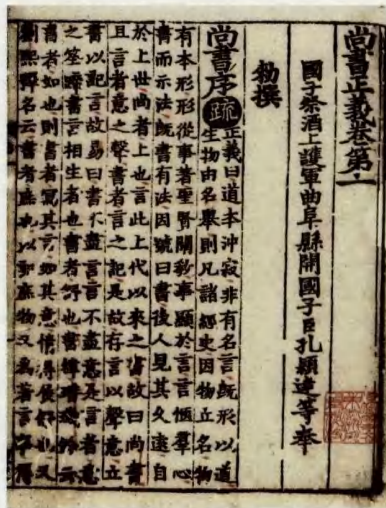 尚書正義卷第一
國子祭酒上護軍曲阜縣開國子臣孔穎達等奉
勑撰
尚書序疏正義曰道本沖寂非有名言既形以道
生物由名舉則凡諸經史因物立名物
有本形形從事著聖賢闡教事顯於言言愜羣心
書而示法既書有法因號曰書後人見其久遠自
於上世尚者上也言此上代以來之書故曰尚書
且言者意之聲書者言之記是故存言以聲意立
書以記言故易曰書不盡言言不盡意是言者意
之筌蹄書言相生者也書者舒也書緯璿璣鈐云
書者如也則書者寫其言如其意情得展舒也又
劉熙釋名云書者庶也以記庶物又為著言